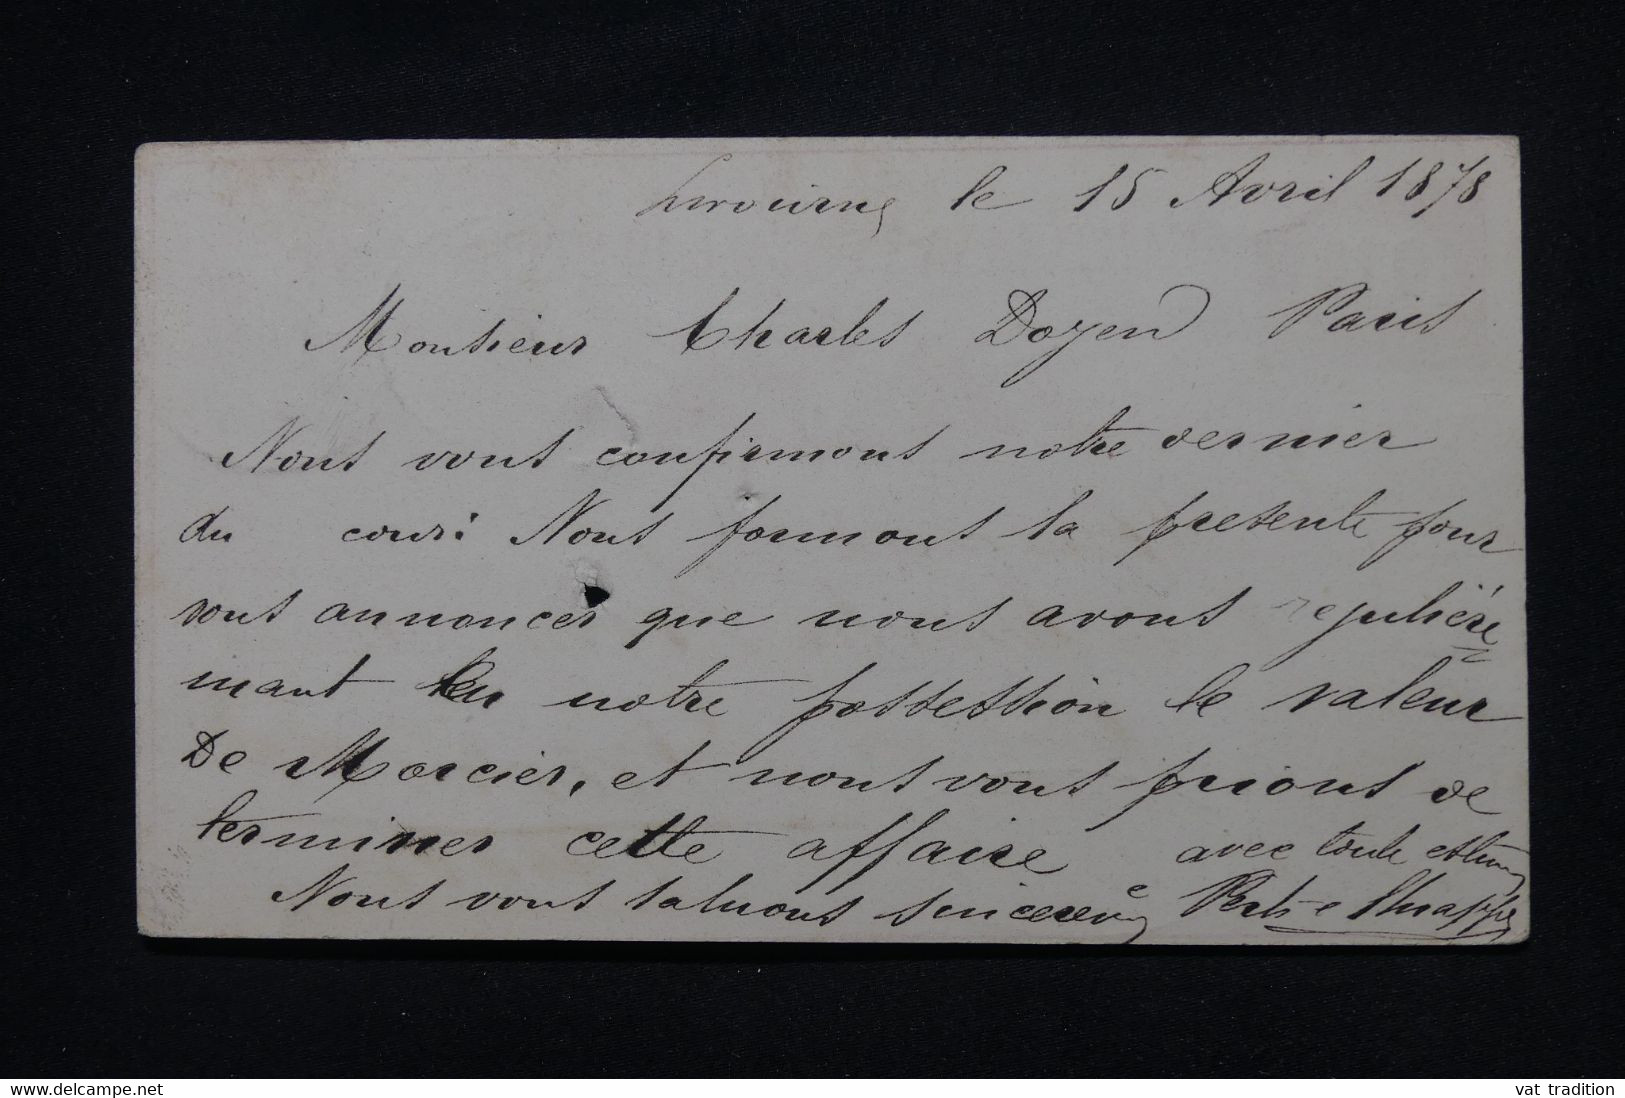 le 15 Avril 1878
Monsieur Charles Doyen Paris
Nous vous confirmons notre dernier
du cour: Nous formons la presente pour
vous annoncer que nous avons regulière
mant en notre possession le valeur
De Morcier, et nous vous prions de
terminer cette affaire avec toute
Nous vous saluons
www.delcampe.net
vat_tradition